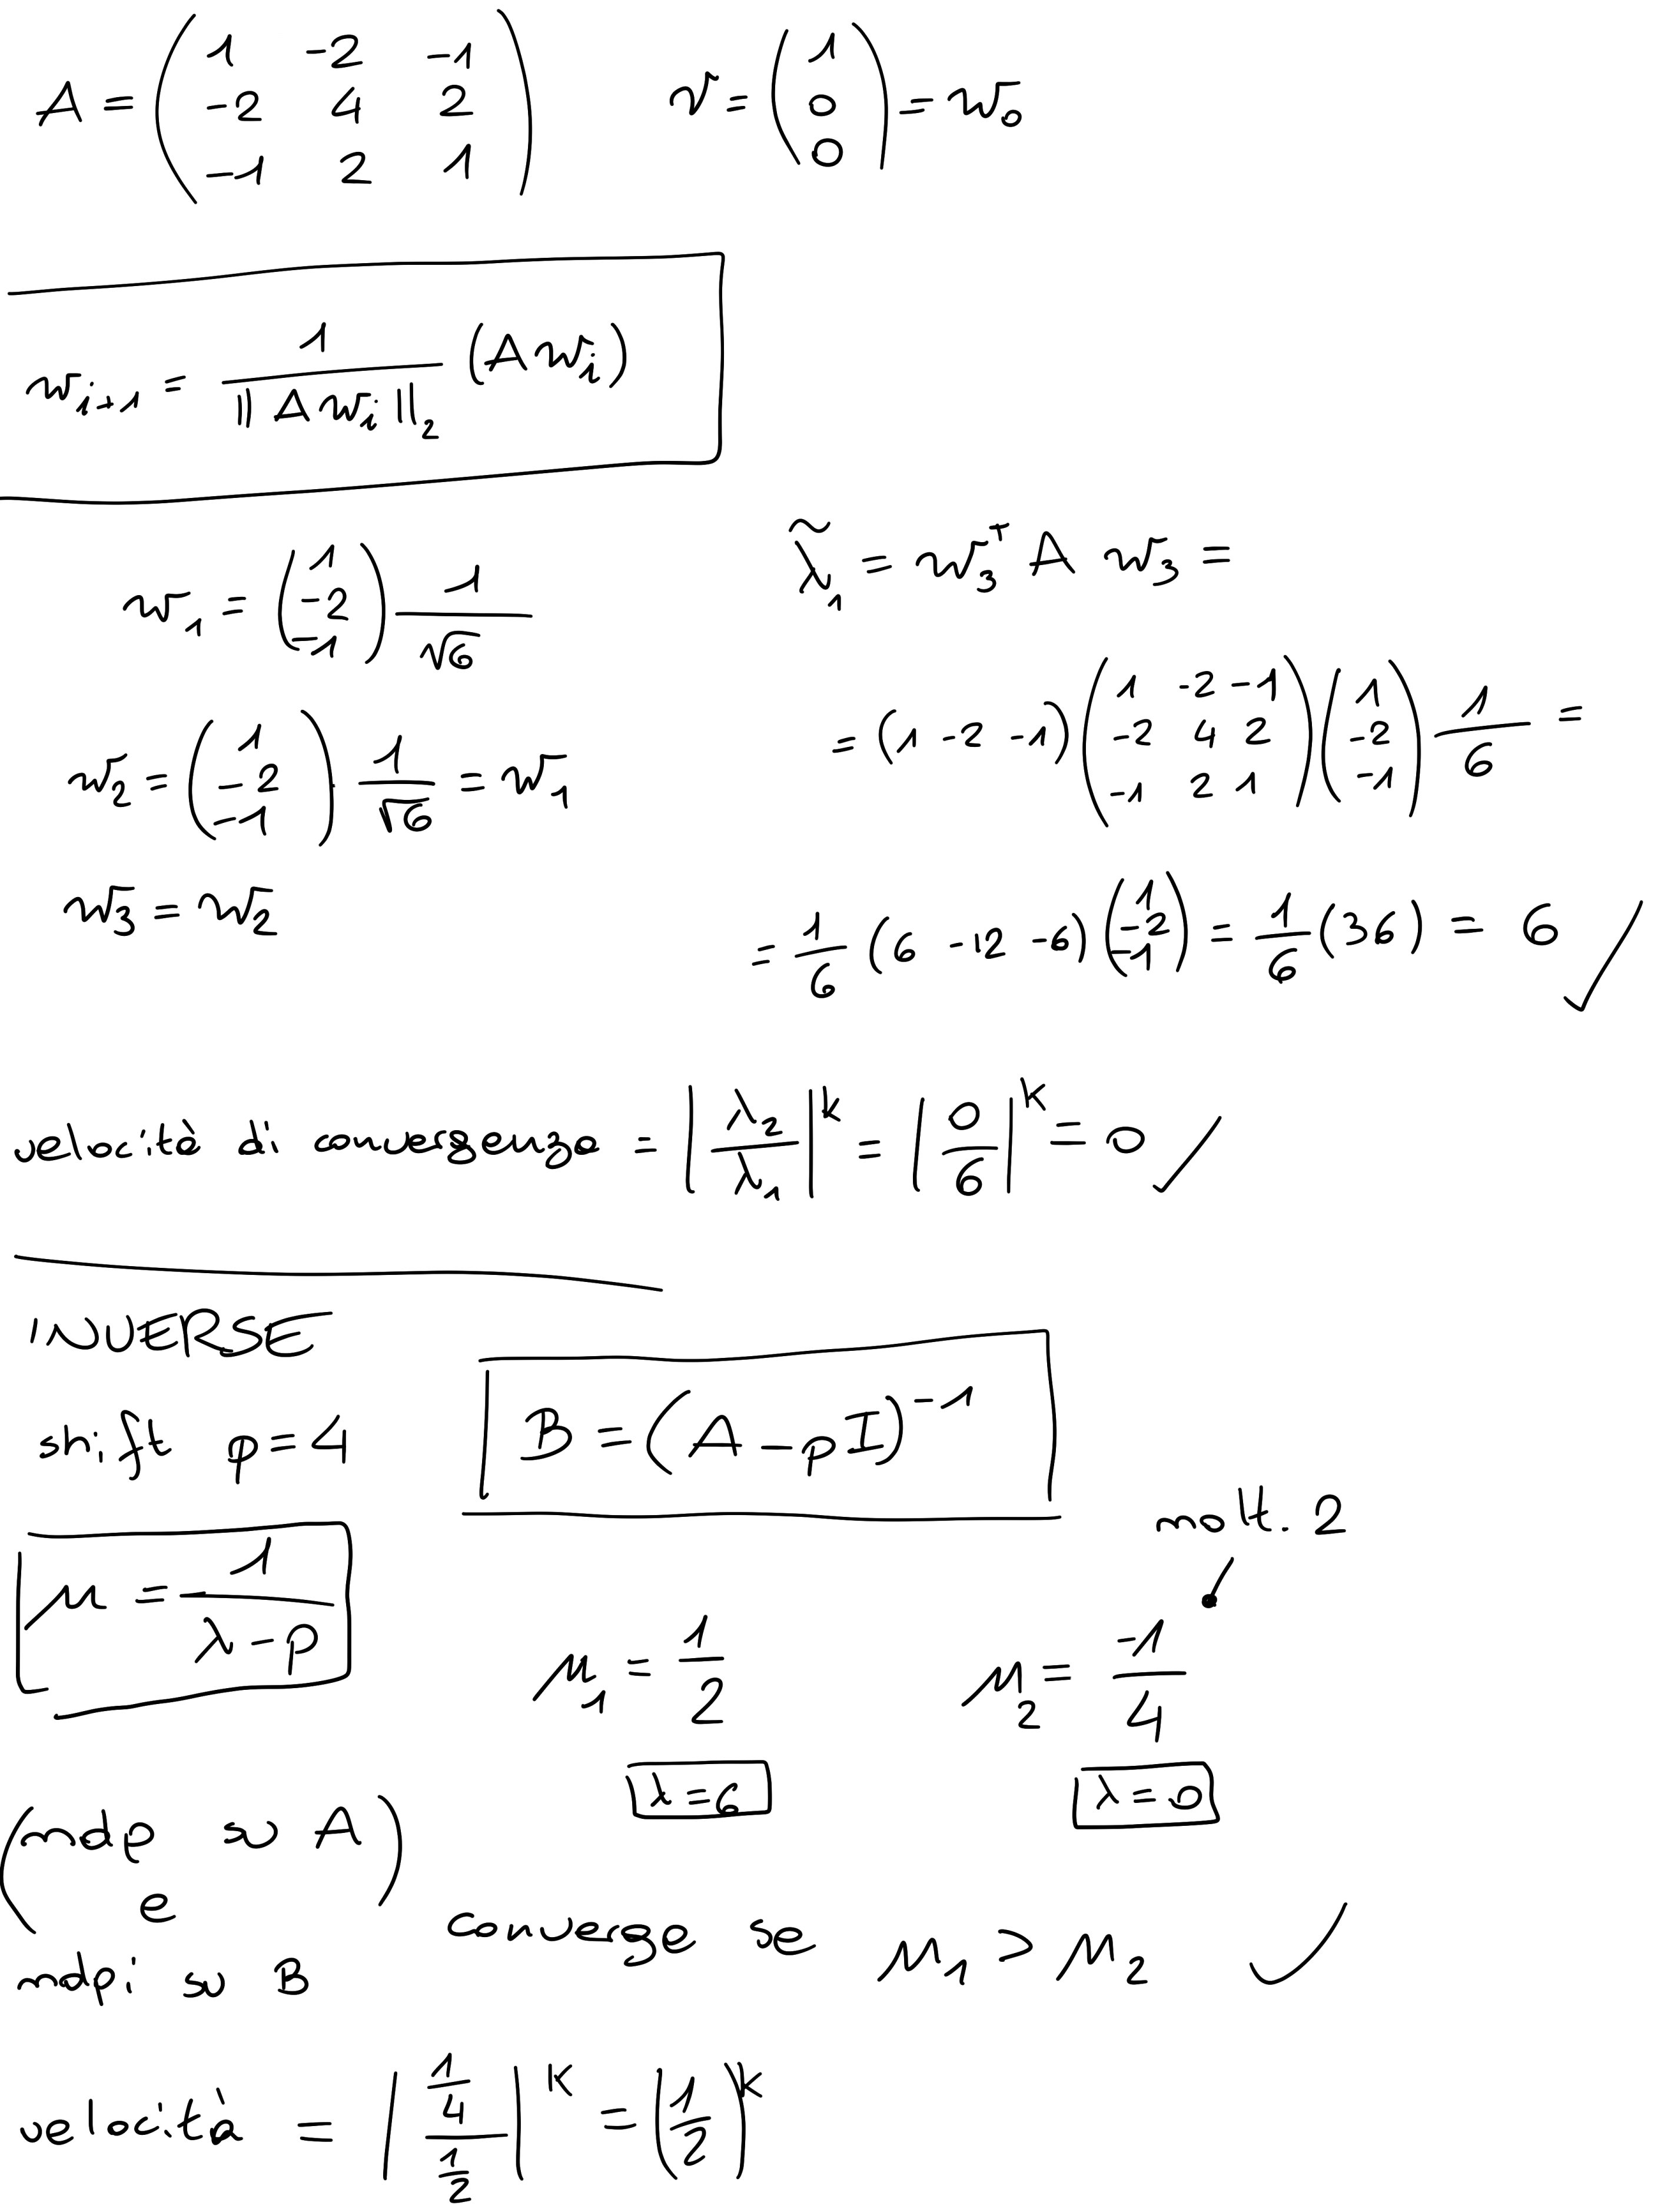 A = ( 1 -2 -1 ; -2 4 2 ; -1 2 1 )   w = ( 1 ; 0 ; 0 ) = w₀
w_{i+1} = 1 / ‖A w_i‖₂ (A w_i)
w₁ = ( 1 ; -2 ; -1 ) 1/√6
w₂ = ( 1 ; -2 ; -1 ) 1/√6 = w₁
w₃ = w₂
λ̃₁ = w₃ᵀ A w₃ =
= (1 -2 -1) ( 1 -2 -1 ; -2 4 2 ; -1 2 1 ) ( 1 ; -2 ; -1 ) 1/6 =
= 1/6 (6 -12 -6) ( 1 ; -2 ; -1 ) = 1/6 (36) = 6 ✓
velocità di convergenza = |λ₂/λ₁|^K = |0/6|^K = 0 ✓
INVERSE
shift p = 4   B = (A - pI)⁻¹
μ = 1/(λ - p)   μ₁ = 1/2   μ₂ = -1/4   molt. 2
λ = 6   λ = 0
(mdp su A)
e
mdpi su B   converge se μ₁ > μ₂ ✓
velocità = |(1/4)/(1/2)|^K = (1/2)^K